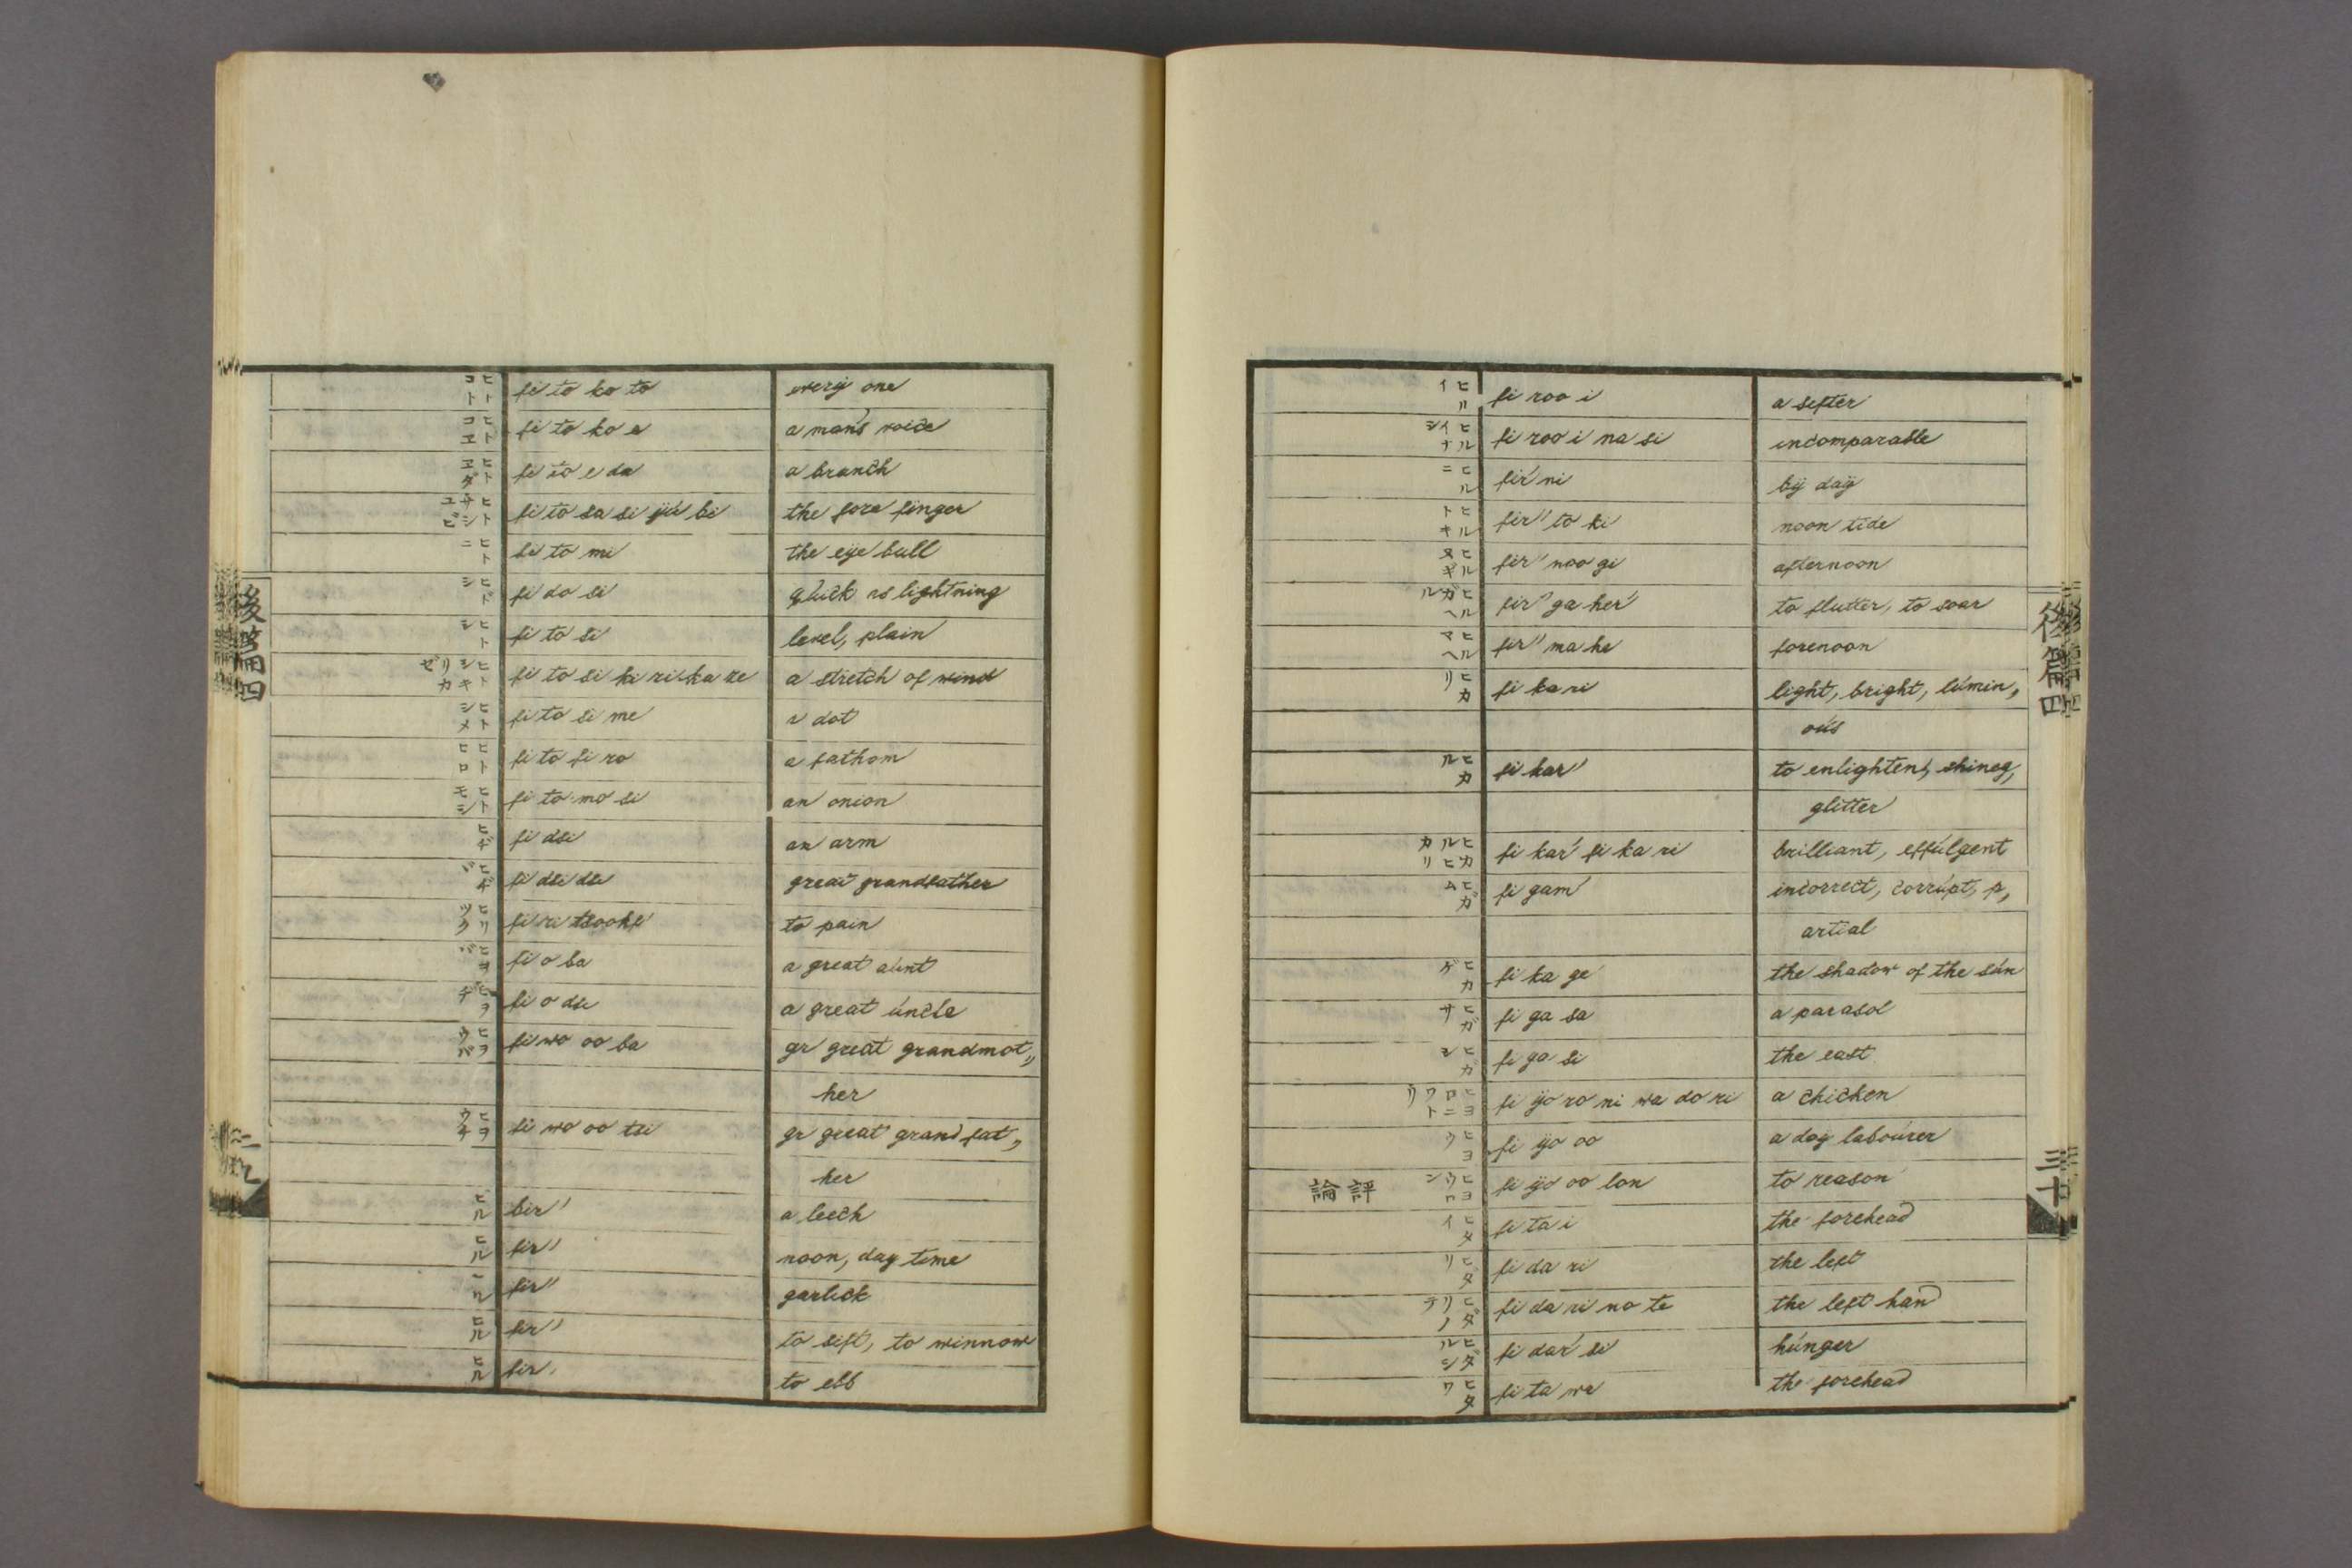 ヒトコト fi to ko to every one
ヒトコヱ fi to ko e a man's voice
ヒトヱダ fi to e da a branch
ヒトサシユビ fi to sa si yu bi the fore finger
ヒトミ hi to mi the eye bull
ヒドシ fi do si quick as lightning
ヒトシ fi to si level, plain
ヒトシキリカゼ fi to si ki ri ka ze a stretch of wind
ヒトシメ fi to si me a dot
ヒトヒロ fi to fi ro a fathom
ヒトモシ fi to mo si an onion
ヒヂ fi dsi an arm
ヒヂヂ fi dsi dsi great grandfather
ヒリツク fi ri tsook to pain
ヒヲバ fi o ba a great aunt
ヒヲヂ fi o dsi a great uncle
ヒヲウバ fi wo oo ba gr great grandmot„
her
ヒヲウチ fi wo oo tsi gr great grandfat„
her
ビル bir' a leech
ヒル fir' noon, day time
ヒル fir" garlick
ヒル fir' to sift, to winnow
ヒル fir' to ebb
後篇四
ヒルイ fi roo i a sifter
ヒルイナシ fi roo i na si incomparable
ヒルニ fir' ni by day
ヒルトキ fir" to ki noon tide
ヒルヌギ fir" noo gi afternoon
ヒルガヘル fir" ga her' to flutter, to soar
ヒルマヘ fir" ma he forenoon
ヒカリ fi ka ri light, bright, lumin„
ous
ヒカル fi kar' to enlighten, shineg,
glitter
ヒカルヒカリ fi kar' fi ka ri brilliant, effulgent
ヒガム fi gam' incorrect, corrupt, p„
artial
ヒカゲ fi ka ge the shadow of the sun
ヒガサ fi ga sa a parasol
ヒガシ fi ga si the east
ヒヨロニワトリ fi yo ro ni wa do ri a chicken
ヒヨウ fi yo oo a day labourer
評論 ヒヨウロン fi yo oo lon to reason
ヒタイ fi ta i the forehead
ヒダリ fi da ri the left
ヒダリノテ fi da ri no te the left hand
ヒダルシ fi dar' si hunger
ヒタワ fi ta wa the forehead
後篇四
三十